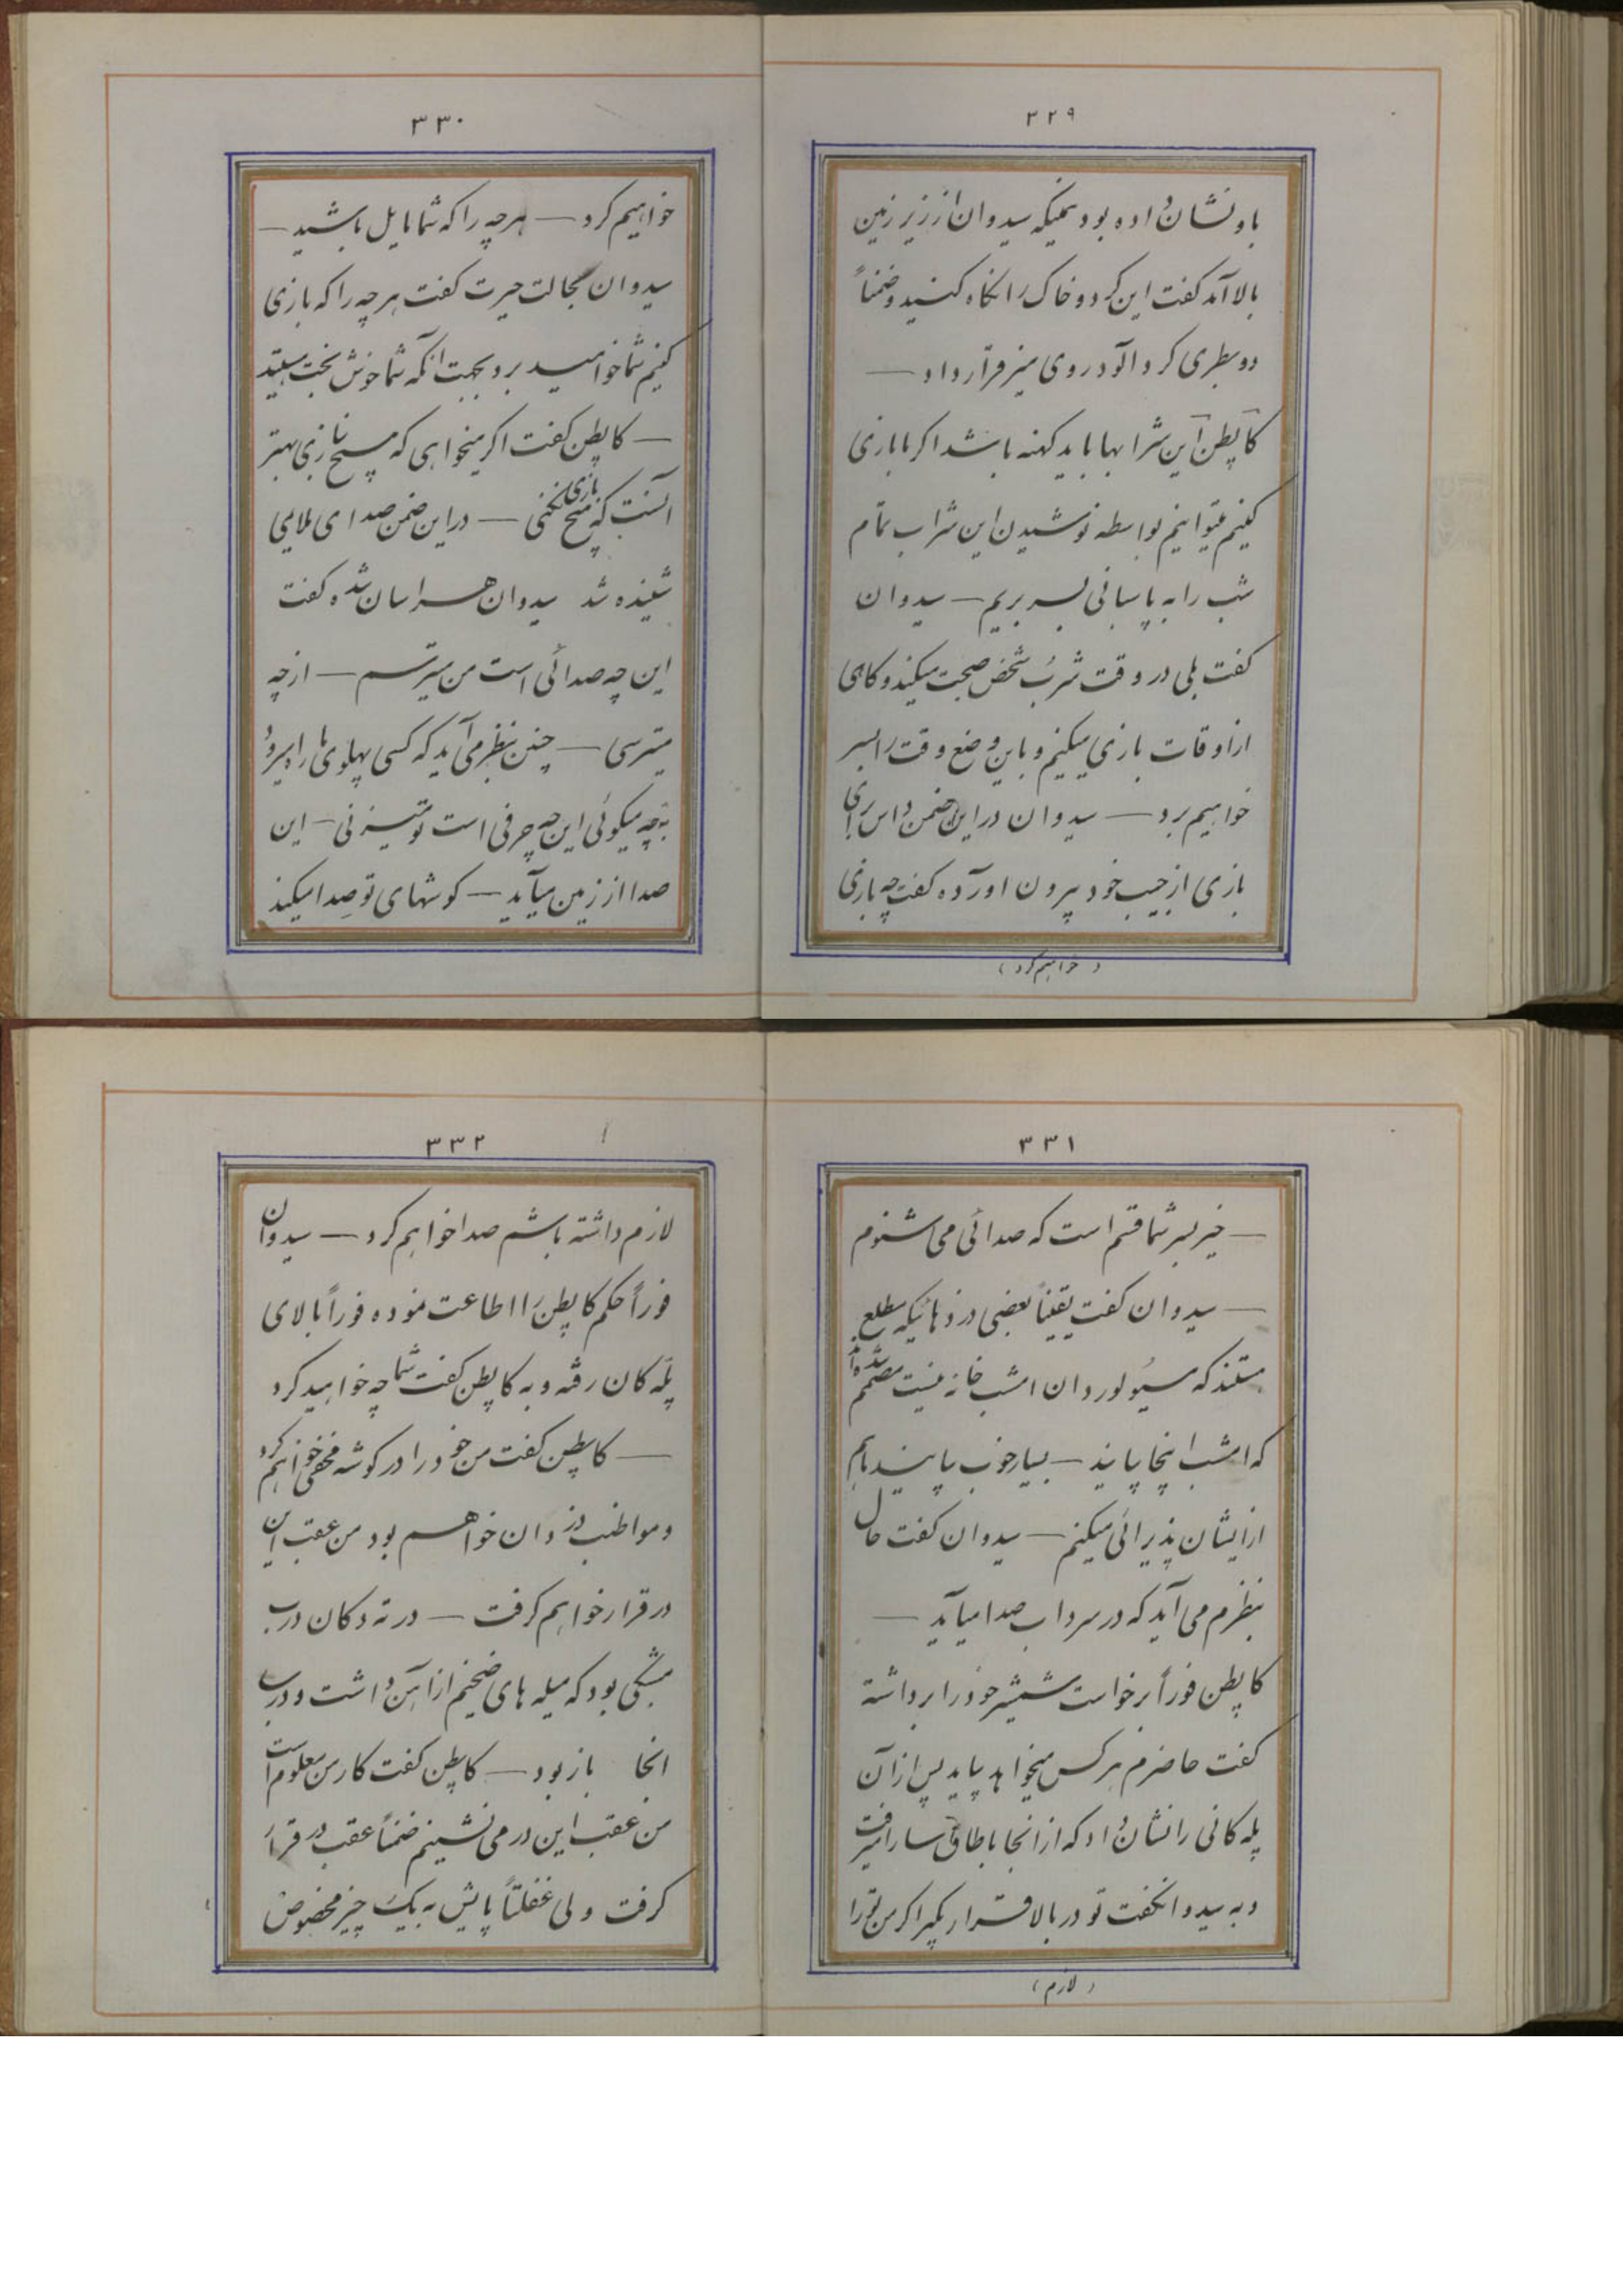 ۳۲۹
باو نشان داده بود همینکه سیدوان از زیر زمین
بالا آمد گفت این گرد و خاک را نگاه کنید و ضمناً
دو بطری گرد آلود روی میز قرار داد —
کاپطن این شرابها باید کهنه باشد اگر ما بازی
کنیم میتوانیم بواسطه نوشیدن این شراب تمام
شب را به پاسبانی بسر بریم — سیدوان
گفت بلی در وقت شرب شخص صحبت میکند و گاهی
از اوقات بازی میکنیم و باین وضع وقت را بسر
خواهیم برد — سیدوان در این ضمن داس برای
بازی از جیب خود بیرون اورآده گفت چه بازی
(خواهیم کرد)
۳۳۰
خواهیم کرد — هرچه را که شما مایل باشید —
سیدوان بحالت حیرت گفت هرچه را که بازی
کنیم شما خواهید برد بجهت آنکه شما خوش بخت هستید
— کاپطن گفت اگر میخواهی که هیچ نبازی بهتر
آنست که هیچ بازی نکنی — در این ضمن صدای ملایمی
شنیده شد سیدوان هراسان شده گفت
این چه صدائی است من میترسم — از چه
میترسی — چنین بنظر می آید که کسی پهلوی ما راه میرود
به چه میگوئی این چه حرفی است تو میزنی — این
صدا از زمین میآید — گوشهای تو صدا میکند
۳۳۱
— خیر بسر شما قسم است که صدائی می شنوم
— سیدوان گفت یقیناً بعضی دزدهائیکه مطلع
هستند که مسیو لوردان امشب خانه نیست مصمم شده اند
که امشب اینجا بیایند — بسیار خوب بیایند ما هم
از ایشان پذیرائی میکنم — سیدوان گفت حال
بنظرم می آید که در سرداب صدا میآید —
کاپطن فوراً برخواست شمشیر خود را برداشته
گفت حاضرم هر کس میخواهد بیاید پس از آن
پله کانی را نشان داد که از انجا باطاق سارا میرفت
و به سیدوان گفت تو در بالا قرار بگیر اگر من تو را
(لازم)
۳۳۲
لازم داشته باشم صدا خواهم کرد — سیدوان
فوراً حکم کاپطن را اطاعت نموده فوراً بالای
پله کان رفته و به کاپطن گفت شما چه خواهید کرد
— کاپطن گفت من خود را در گوشه مخفی خواهم کرد
و مواظب دزدان خواهم بود من عقب این
در قرار خواهم گرفت — در ته دکان درب
مشبکی بود که میله های ضخیم از آهن داشت و درب
انجا باز بود — کاپطن گفت کار من معلوم است
من عقب این در می نشینم ضمناً عقب در قرار
گرفت ولی غفلتاً پایش به یک چیز مخصوص